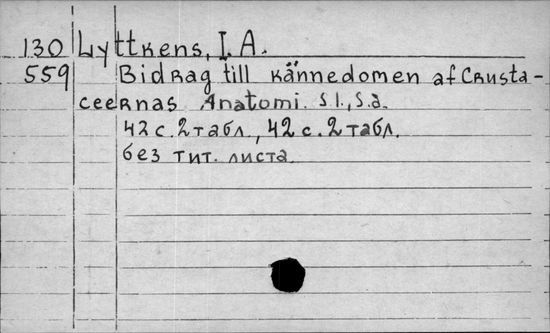 130 Lyttkens, I. A.
559 Bidrag till kännedomen af Crusta-
ceernas Anatomi. S.l., S.a.
42 с. 2 табл., 42 с. 2 табл.
без тит. листа.